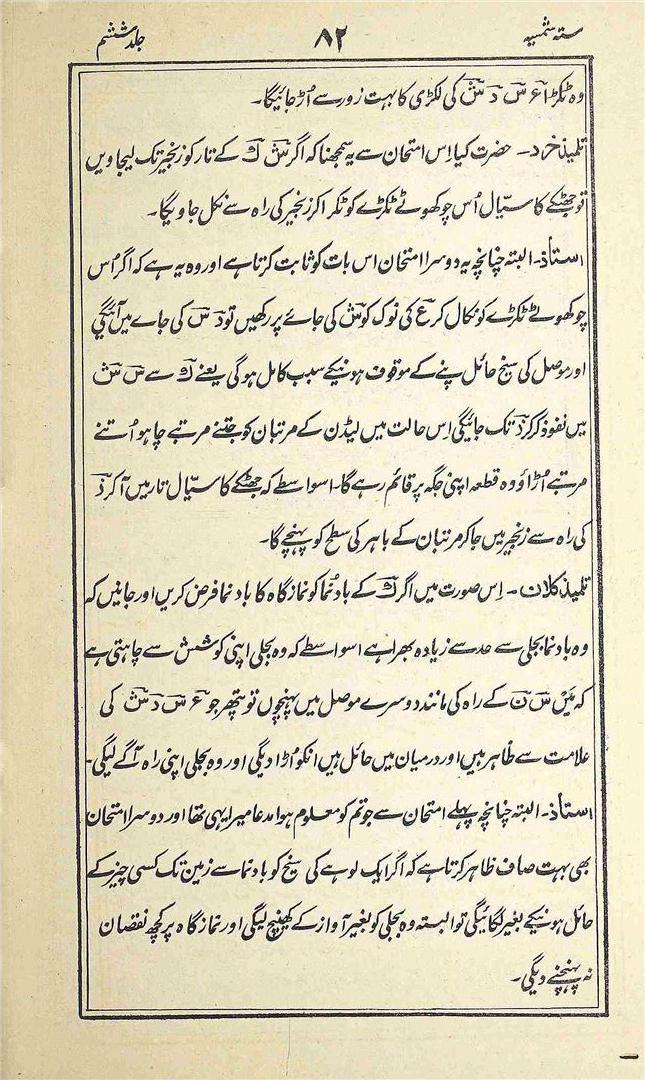 ستہ شمسیہ ۸۲ جلد ششم
وہ ٹکڑا عَ سَ دَ شَ کی لکڑی کا بہت زور سے اُڑ جائیگا۔
تلمیذ خرد۔ حضرت کیا اِس امتحان سے یہ سمجھنا کہ اگر شَ کَ کے تار کو زنجیر تک لیجاویں
تو جھٹکے کا سیّال اُس چوکھوٹے ٹکڑے کو ٹکر اکر زنجیر کی راہ سے نکل جاویگا۔
استاذ۔ البتہ چنانچہ یہ دوسرا امتحان اس بات کو ثابت کرتا ہے اور وہ یہ ہے کہ اگر اُس
چوکھوٹے ٹکڑے کو نکال کر عَ کی نوک کو شَ کی جائے پر رکھیں تو دَ سَ کی جاے میں آئیگی
اور موصل کی سیخ حائل پنے کے موقوف ہونیکے سبب کامل ہوگی یعنے کَ سے سَ شَ
میں نفوذ کرکر دَ تک جائیگی اِس حالت میں لیڈن کے مرتبان کو جتنے مرتبے چاہو اُتنے
مرتبے اُڑاؤ وہ قطعہ اپنی جگہ پر قائم رہے گا۔ اسواسطے کہ جھٹکے کا سیّال تار میں آکر دَ
کی راہ سے زنجیر میں جاکر مرتبان کے باہر کی سطح کو پہنچے گا۔
تلمیذ کلان۔ اِس صورت میں اگر کَ کے باد نُما کو نمازگاہ کا باد نما فرض کریں اور جانیں کہ
وہ باد نما بجلی سے حد سے زیادہ بھرا ہے اسواسطے کہ وہ بجلی اپنی کوشش سے چاہتی ہے
کہ مَیْں سَ نَ کے راہ کی مانند دوسرے موصل میں پہنچوں تو پتھر جو عَ سَ دَ شَ کی
علامت سے ظاہر ہیں اور درمیان میں حائل ہیں انکو اُڑا دیگی اور وہ بجلی اپنی راہ آگے لیگی۔
استاذ۔ البتہ چنانچہ پہلے امتحان سے جو تم کو معلوم ہوا مدعا میرا یہی تھا اور دوسرا امتحان
بھی بہت صاف ظاہر کرتا ہے کہ اگر ایک لوہے کی سیخ کو باد نما سے زمین تک کسی چیز کے
حائل ہونیکے بغیر لگائیگی تو البتہ وہ بجلی کو بغیر آواز کے کھینچ لیگی اور نمازگاہ پر کچھ نقصان
نہ پہنچنے دیگی۔